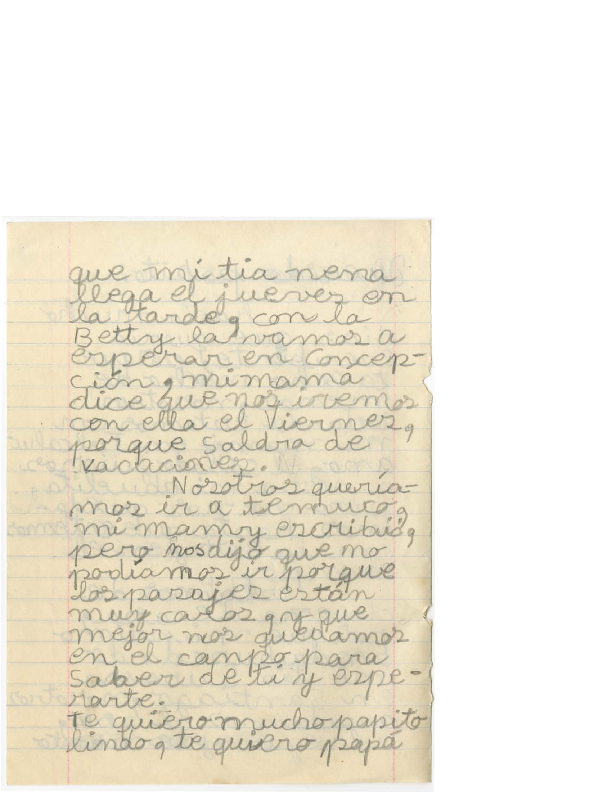 que mi tia nena
llega el jueves en
la tarde, con la
Betty la vamos a
esperar en Concep-
ción, mi mama
dice que nos iremos
con ella el Viernes,
porque saldra de
vacaciones.
Nosotros quería-
mos ir a temuco,
mi mamy escribió,
pero nos dijo que no
podíamos ir porque
los pasajes están
muy caros, y que
mejor nos quedamos
en el campo para
saber de ti y espe-
rarte.
te quiero mucho papito
lindo, te quiero papá